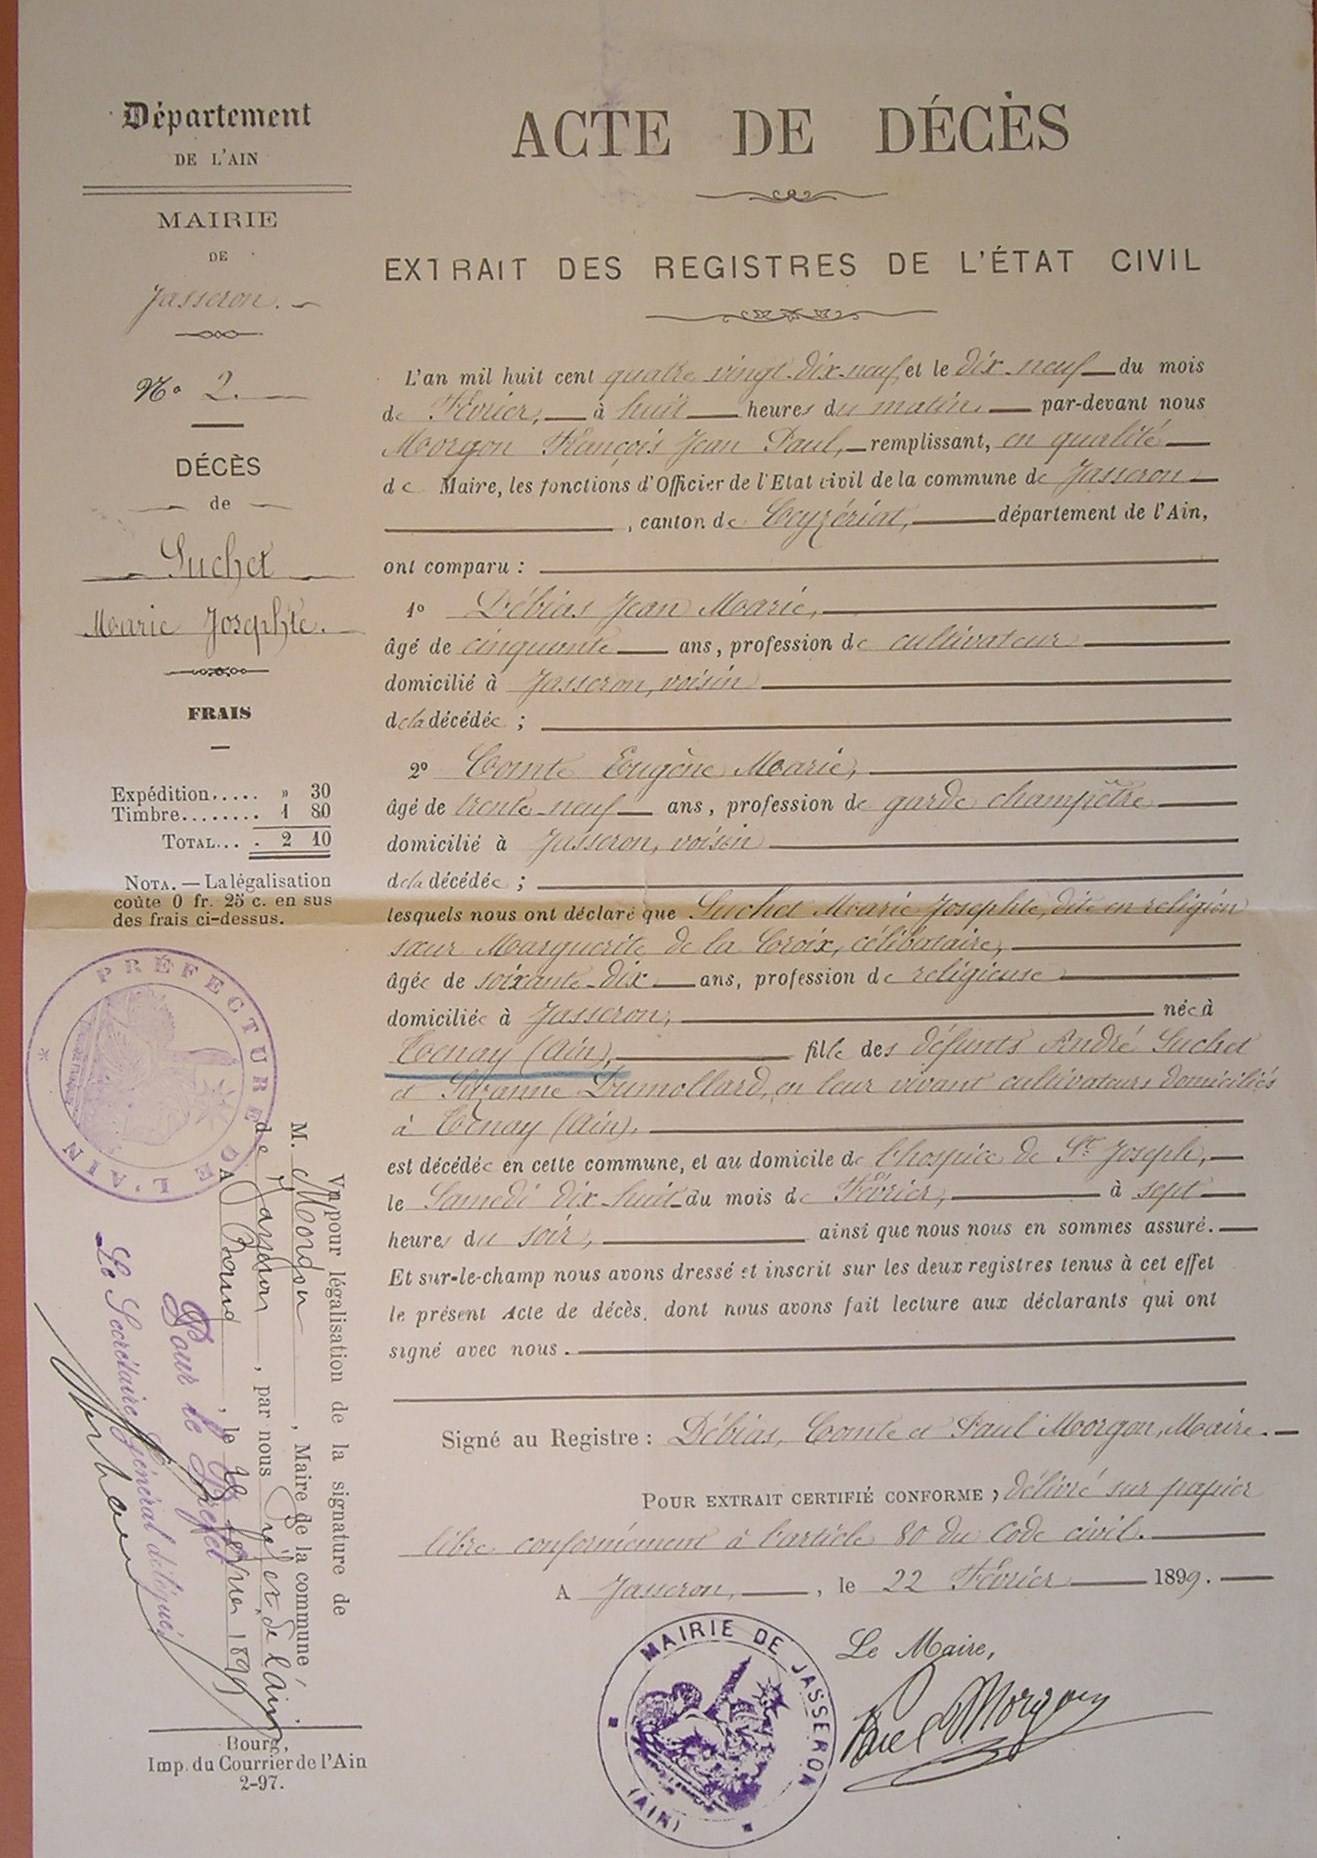 Département
DE L'AIN
MAIRIE
DE
Jasseron.
No 2.
DÉCÈS
de
Suchet
Marie Josephte.
FRAIS
Expédition..... » 30
Timbre........ 1 80
TOTAL... . 2 10
NOTA. — La légalisation
coûte 0 fr. 25 c. en sus
des frais ci-dessus.
PRÉFECTURE DE L'AIN
Vu pour légalisation de la signature de
M. Morgon, Maire de la commune
de Jasseron, par nous Préfet de l'Ain
A Bourg, le février 1899
Pour le Préfet
Le Secrétaire Général délégué
Bourg,
Imp. du Courrier de l'Ain
2-97.
ACTE DE DÉCÈS
EXTRAIT DES REGISTRES DE L'ÉTAT CIVIL
L'an mil huit cent quatre vingt-dix-neuf et le dix-neuf du mois
de Février, à huit heures du matin, par-devant nous
Morgon François Jean Paul, remplissant, en qualité
de Maire, les fonctions d'Officier de l'Etat civil de la commune de Jasseron
, canton de Ceyzériat, département de l'Ain,
ont comparu :
1o Débias Jean Marie,
âgé de cinquante ans, profession de cultivateur
domicilié à Jasseron, voisin
de la décédée ;
2o Comte Eugène Marie,
âgé de trente-neuf ans, profession de garde champêtre
domicilié à Jasseron, voisin
de la décédée ;
lesquels nous ont déclaré que Suchet Marie Josephte, dite en religion
sœur Marguerite de la Croix, célibataire,
âgée de soixante-dix ans, profession de religieuse
domiciliée à Jasseron, née à
Tenay (Ain), fille des défunts André Suchet
et Suzanne Dumollard, en leur vivant cultivateurs domiciliés
à Tenay (Ain),
est décédée en cette commune, et au domicile de l'hospice de St Joseph,
le Samedi dix-huit du mois de Février, à sept
heures du soir, ainsi que nous nous en sommes assuré.
Et sur-le-champ nous avons dressé et inscrit sur les deux registres tenus à cet effet
le présent Acte de décès, dont nous avons fait lecture aux déclarants qui ont
signé avec nous.
Signé au Registre : Débias, Comte et Paul Morgon, Maire.
POUR EXTRAIT CERTIFIÉ CONFORME, délivré sur papier
libre conformément à l'article 80 du Code civil.
A Jasseron, , le 22 Février 1899.
Le Maire,
Paul Morgon
MAIRIE DE JASSERON
(AIN)